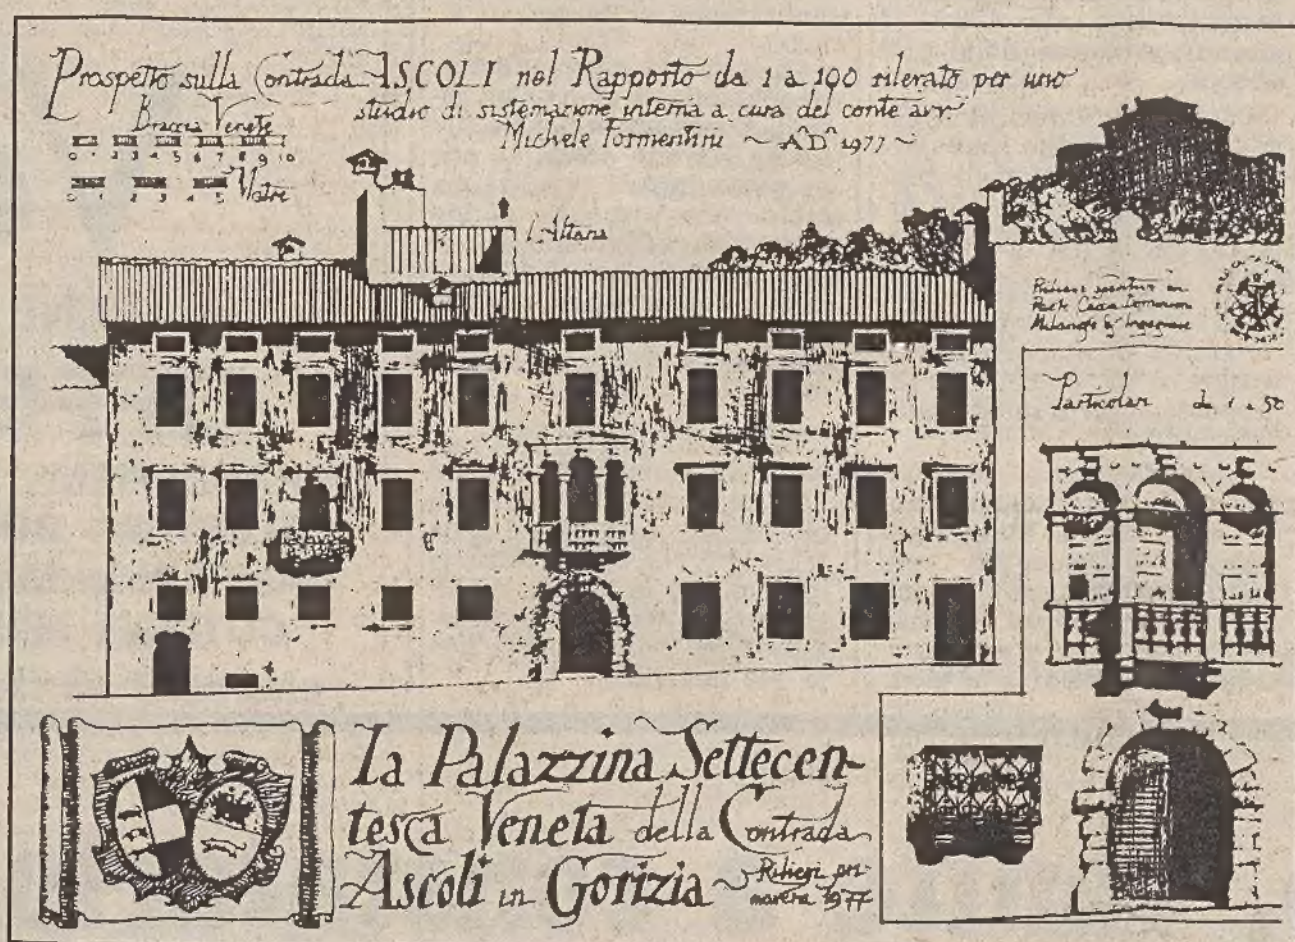 Prospetto sulla Contrada ASCOLI nel Rapporto da 1 a 100 rilevato per uno
studio di sistemazione interna a cura del conte avv.
Michele Formentini ~ A.D. 1977 ~
Braccia Venete
0 1 2 3 4 5 6 7 8 9 10
0 1 2 3 4 5 Metri
l'Altana
Rilievi
Milanofo
Particolari da 1 a 50
La Palazzina Settecen-
tesca Veneta della Contrada
Ascoli in Gorizia ~ Rilievi pri-
mavera 1977